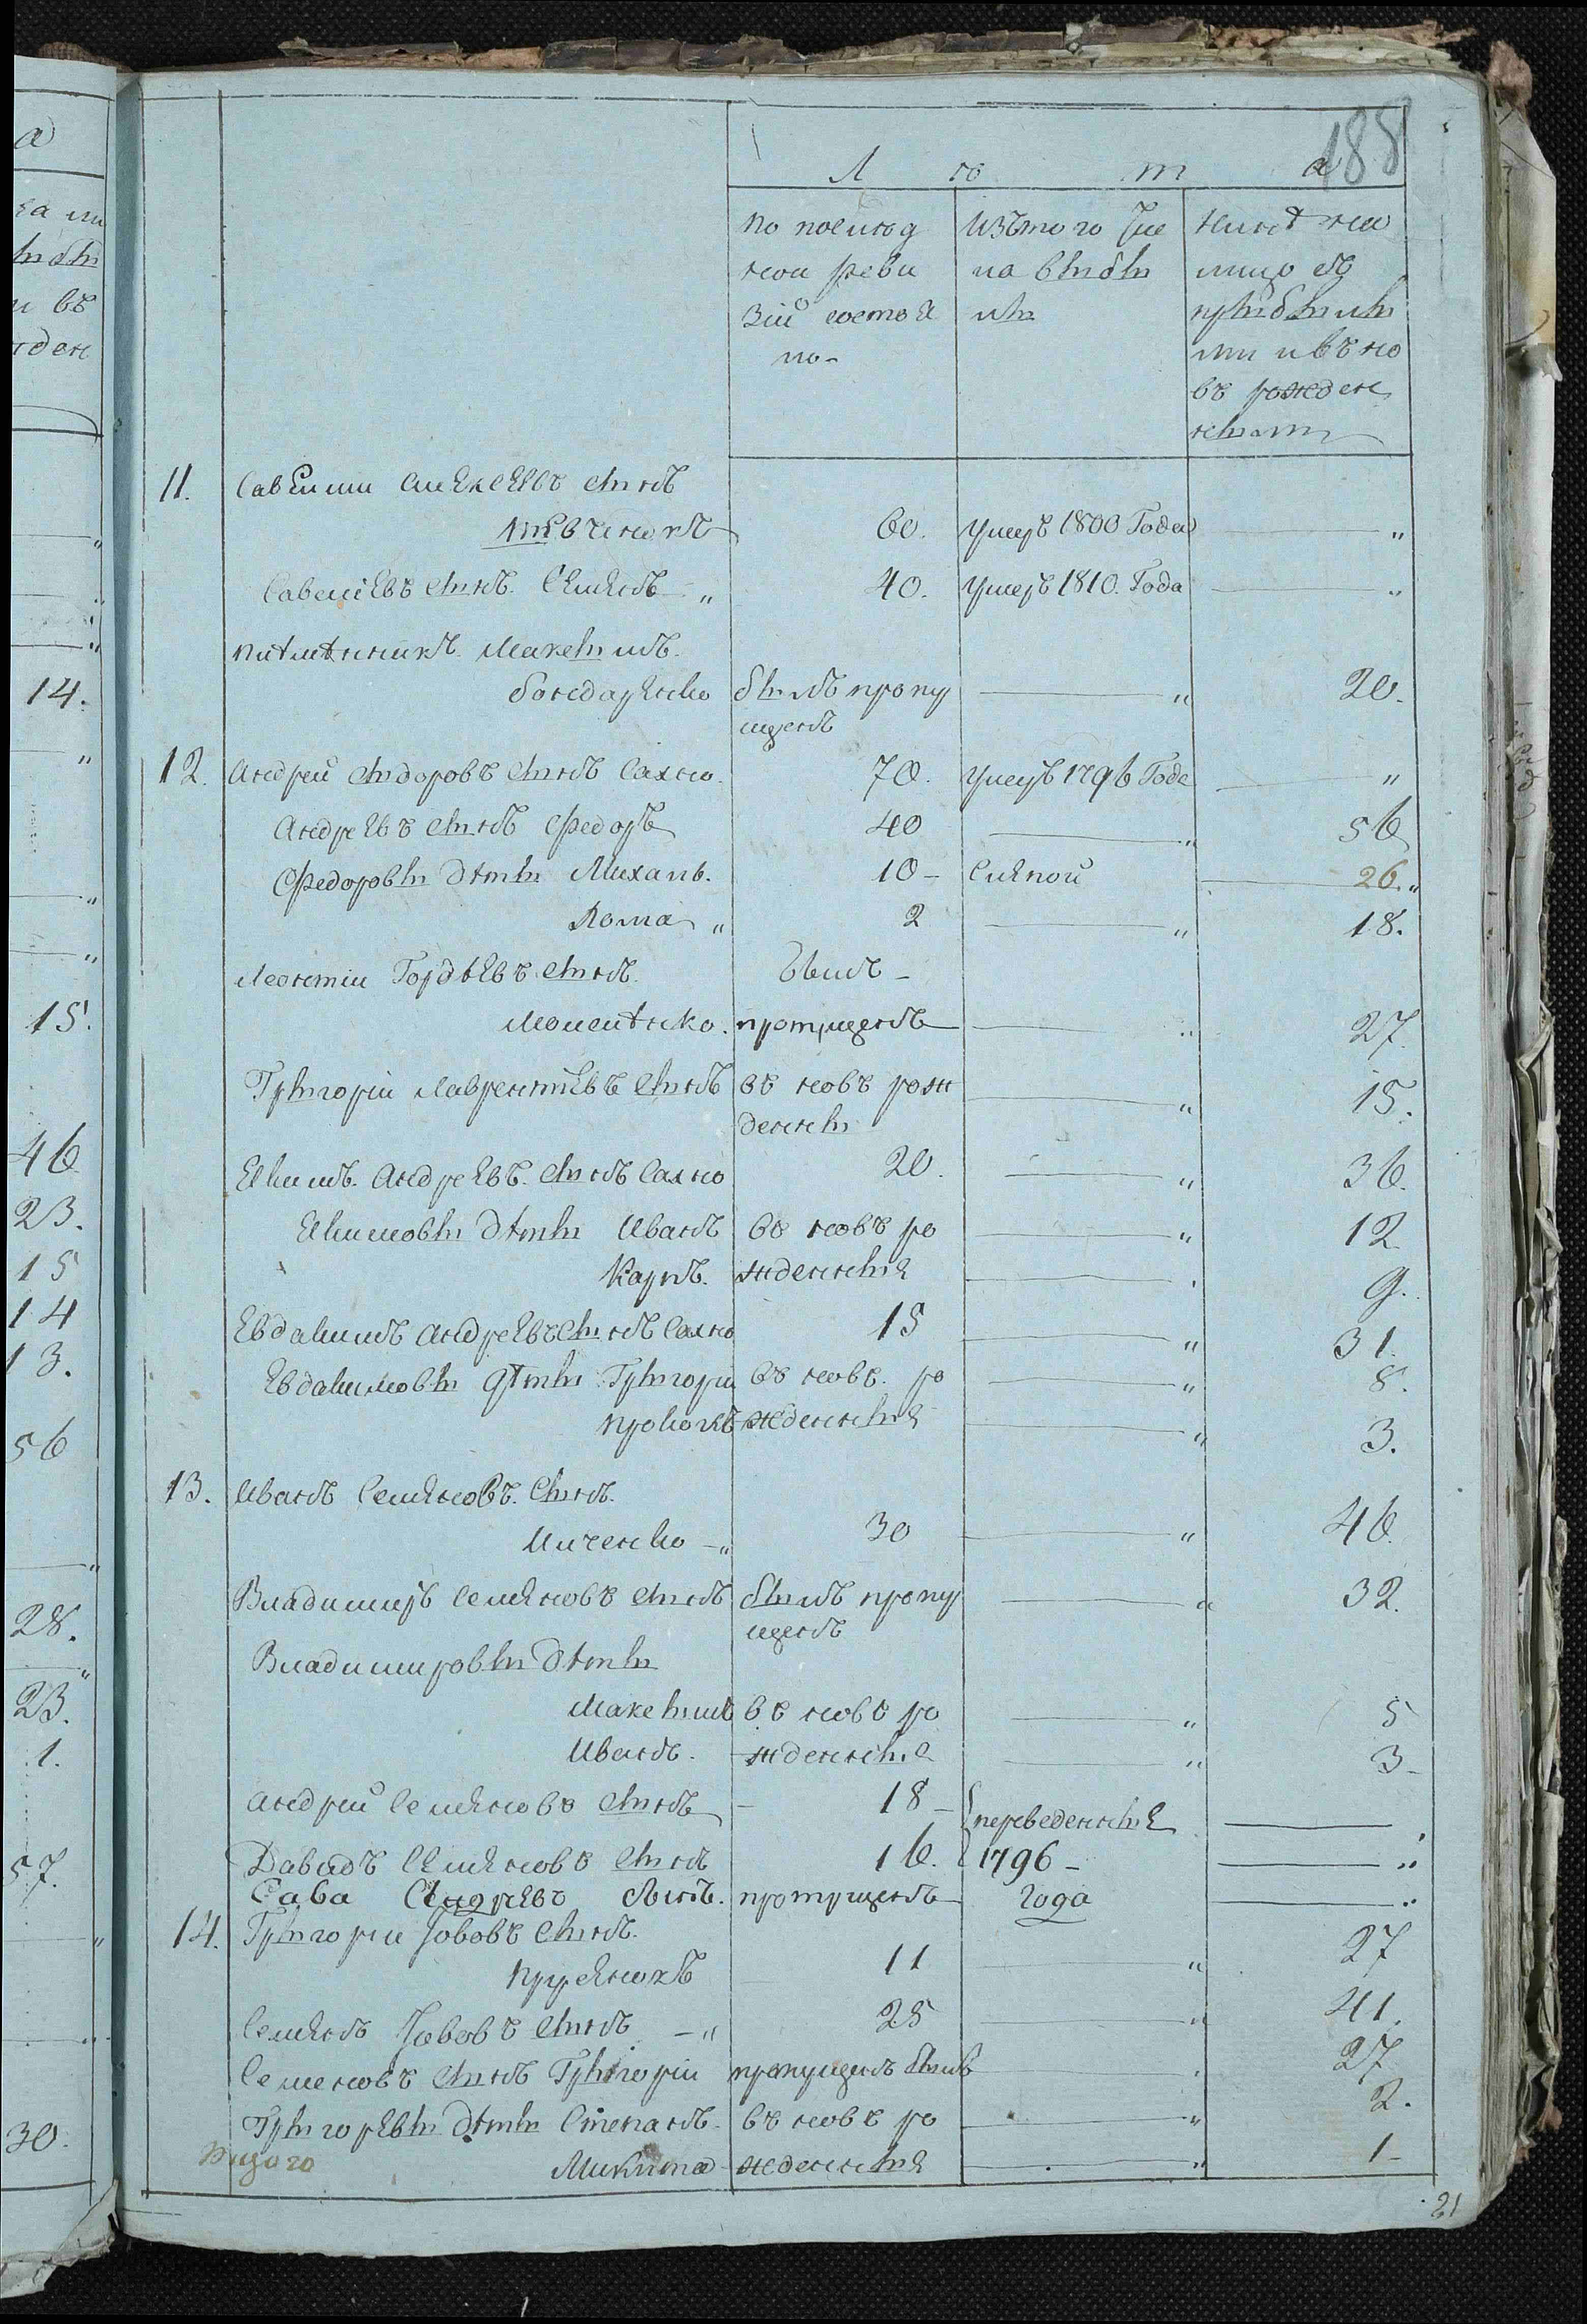 188
Л ѣ т а
По послѣд ней реви зіи состоя ло
Изъ того чис ла выбы ли
Нынѣ на лицо съ прибылы ми и въ но въ рожден ными
11. Савелии Алексѣевъ сынъ
60. умеръ 1800 Года "
Савеліевъ сынъ Семенъ " 40. умеръ 1810. Года "
племѣнникъ Максимъ
Бондаренко былъ пропу щенъ " 20.
12. Андрей Сидоровъ сынъ Сахно 70. умеръ 1796 Года "
Андреевъ сынъ Федоръ 40 " 56
Федоровы дѣти Михаилъ 10 - слепой 26. "
Рома " 2 " 18.
Леонтіи Гордѣевъ сынъ Бывъ -
пропущенъ " 27.
Григоріи Лаврентіевъ сынъ въ новъ рож денны " 15.
Екимъ Андреевъ сынъ Сахно 20. " 36.
Екимовы дѣти Иванъ въ новъ ро " 12
Карпъ. жденныя 9.
Евдакимъ Андреевъ сынъ Сахно 15 " 31.
Евдакимовы дѣти Григоріи въ новъ ро " 8.
Прокопъ жденныя " 3.
13. Иванъ Семеновъ сынъ
Инченко - " 30 " 46.
Владимиръ Семеновъ сынъ былъ пропу щенъ " 32.
Владимировы дѣти
Максимъ въ новъ ро " 5
Иванъ. жденныя " 3 -
Андреи Семеновъ сынъ - 18 - переведенныя
Давидъ Семеновъ сынъ 16. 1796 - "
Сава Андреевъ сынъ. пропущенъ года "
14. Григоріи Іововъ сынъ
11 " 27
Семенъ Іововъ сынъ - " 25 " 41.
Семеновъ сынъ Григоріи пропущенъ былъ 27
Григоревы дѣти Степанъ въ новъ ро " 2.
Микита жденныя " 1 -
21
а
14.
"
15.
46
23.
15
14
13.
56
28.
23.
1.
57.
30.